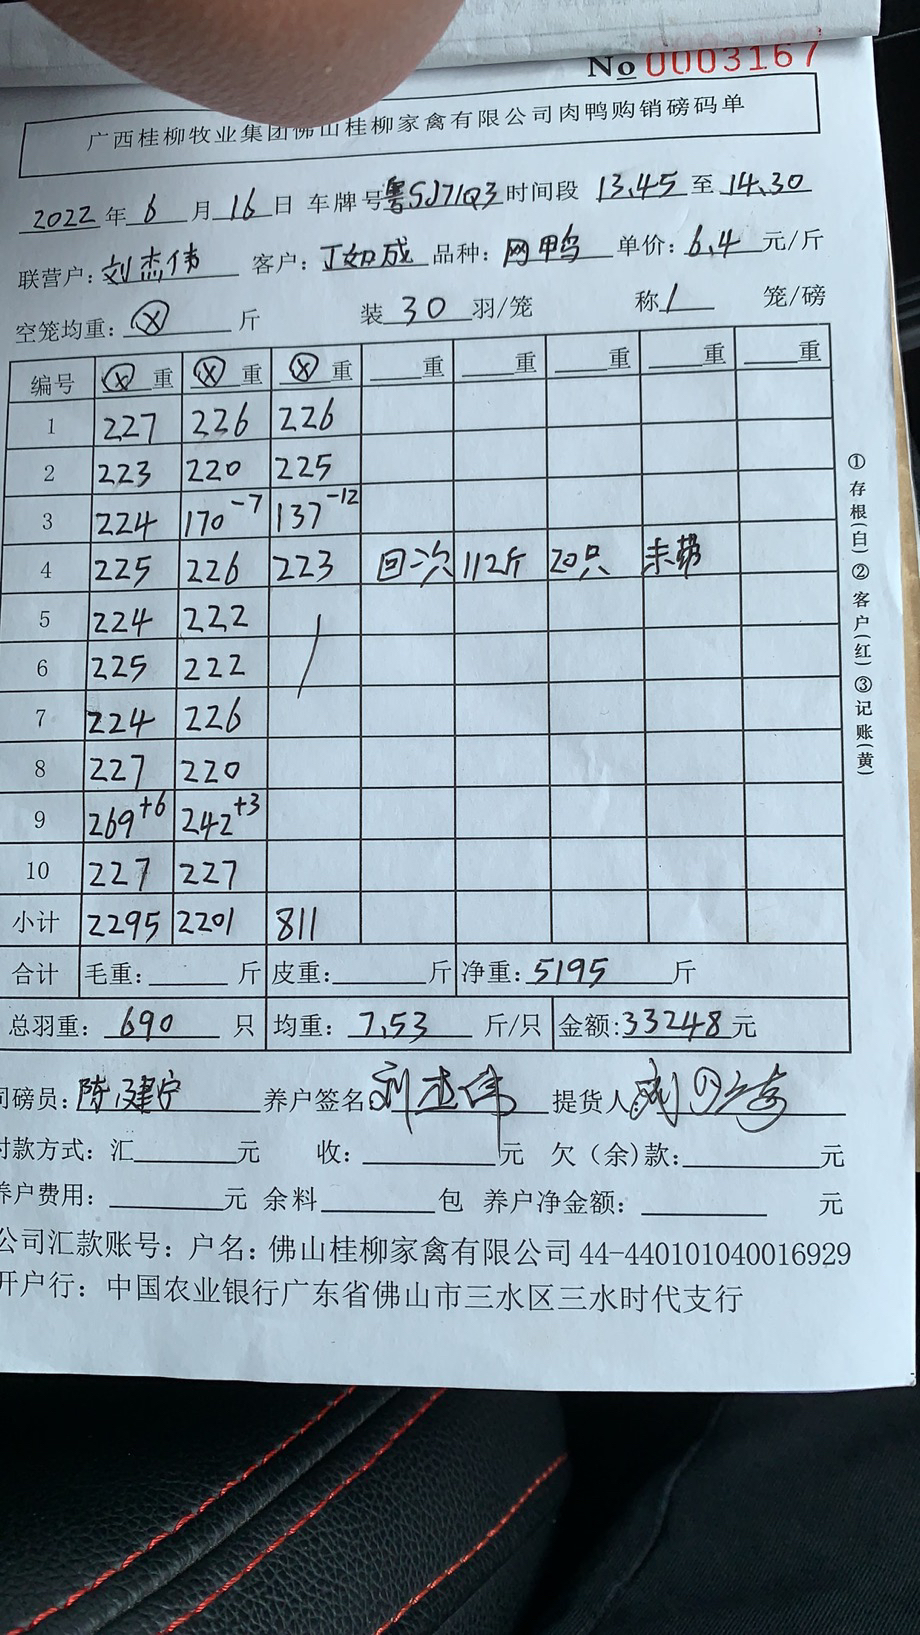 No 0003167
广西桂柳牧业集团佛山桂柳家禽有限公司肉鸭购销磅码单
2022年6月16日 车牌号粤SJ71Q3时间段 13.45至14.30
联营户:刘杰伟 客户:丁如成 品种:网鸭 单价:6.4元/斤
空笼均重:ⓧ斤 装30羽/笼 称1笼/磅
编号 ⓧ重 ⓧ重 ⓧ重 重 重 重 重 重
1 227 226 226
2 223 220 225
3 224 170-7 137-12
4 225 226 223 回次 112斤 20只 未带
5 224 222
6 225 222
7 224 226
8 227 220
9 269+6 242+3
10 227 227
小计 2295 2201 811
合计 毛重:斤 皮重:斤 净重:5195斤
总羽重:690只 均重:7.53斤/只 金额:33248元
司磅员:陈建宁 养户签名:刘杰伟 提货人:
付款方式:汇元 收:元 欠(余)款:元
养户费用:元 余料包 养户净金额:元
公司汇款账号:户名:佛山桂柳家禽有限公司44-440101040016929
开户行:中国农业银行广东省佛山市三水区三水时代支行
①存根(白)②客户(红)③记账(黄)